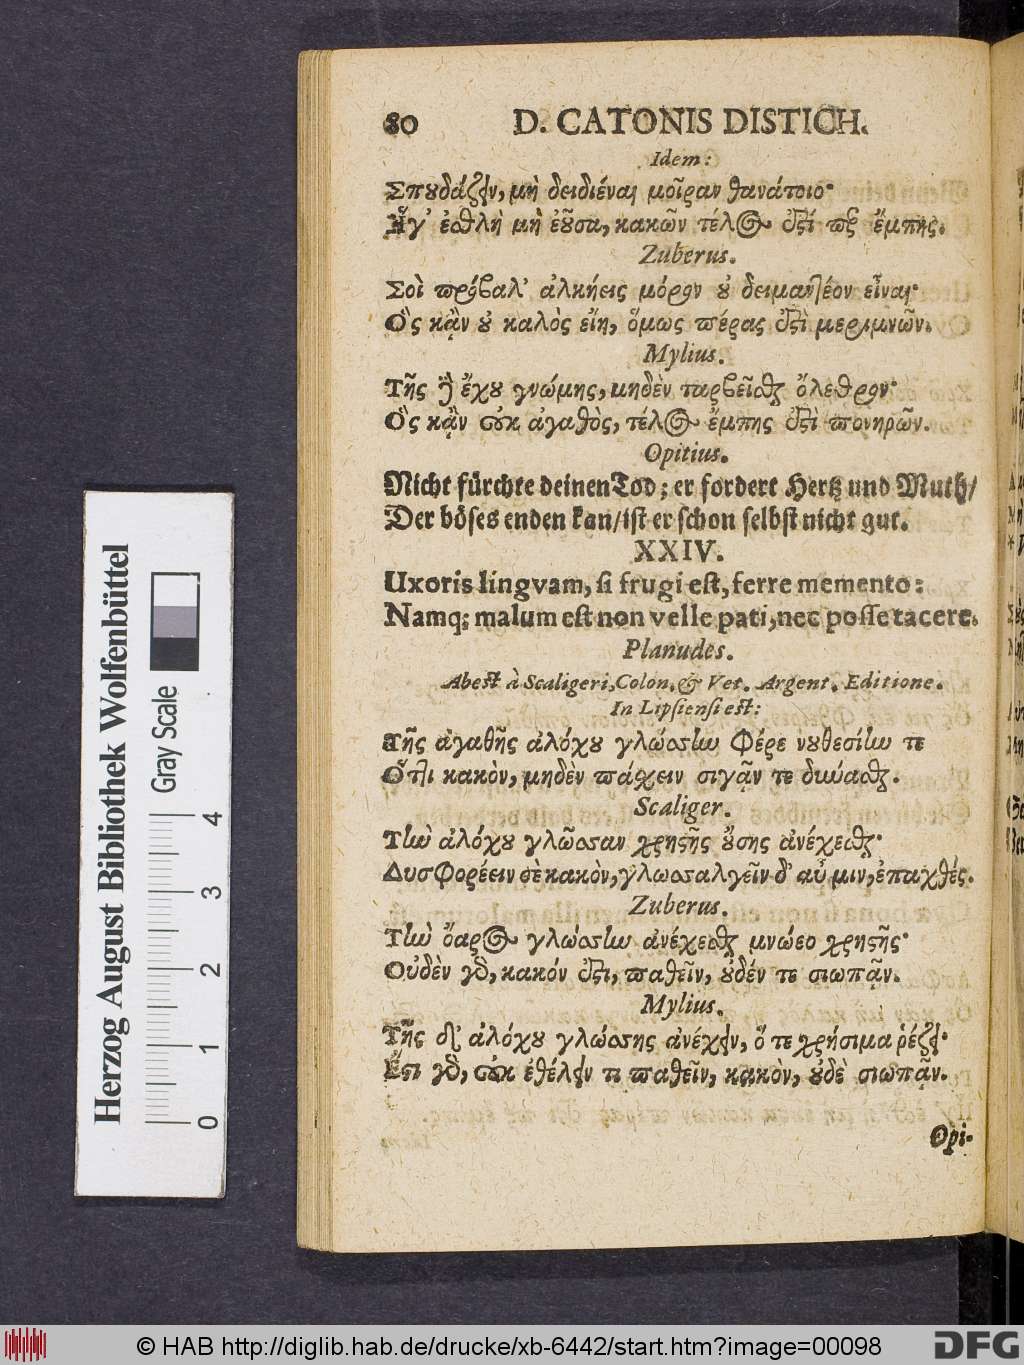 80 D. CATONIS DISTICH.
Idem:
Σπουδάζειν, μὴ δειδιέναι μοῖραν θανάτοιο·
Ἥγ' ἐσθλὴ μὴ ἐοῦσα, κακῶν τέλος ἐστί περ ἔμπης.
Zuberus.
Σοὶ πρόβαλ' ἀλκήεις μόρον οὐ δειμαντέον εἶναι·
Ὃς κᾂν οὐ καλὸς εἴη, ὅμως πέρας ἐστὶ μεριμνῶν.
Mylius.
Τῆς δ' ἔχου γνώμης, μηδὲν ταρβεῖσθαι ὄλεθρον·
Ὃς κᾂν οὐκ ἀγαθὸς, τέλος ἔμπης ἐστὶ πονηρῶν.
Opitius.
Nicht fürchte deinen Tod; er fordert Hertz und Muth/
Der böses enden kan/ist er schon selbst nicht gut.
XXIV.
Uxoris lingvam, si frugi est, ferre memento:
Namq; malum est non velle pati, nec posse tacere.
Planudes.
Abest à Scaligeri, Colon. & Vet. Argent. Editione.
In Lipsiensi est:
Τῆς ἀγαθῆς ἀλόχου γλώσσην φέρε νουθεσίην τε
Ὅττι κακὸν, μηδὲν πάσχειν σιγᾷν τε δύνασθαι.
Scaliger.
Τὴν ἀλόχου γλῶσσαν χρηστῆς οὔσης ἀνέχεσθαι·
Δυσφορέειν σὲ κακὸν, γλωσσαλγεῖν δ' αὖ μιν, ἐπαχθές.
Zuberus.
Τὴν ὄαρος γλώσσην ἀνέχεσθαι μνώεο χρηστῆς·
Οὐδὲν γὸ, κακόν ἐστι, παθεῖν, οὐδέν τε σιωπᾷν.
Mylius.
Τῆς ἀλόχου γλώσσης ἀνέχειν, ὅ τε χρήσιμα ῥέζει·
Ἔστι γὸ, οὐκ ἐθέλειν τι παθεῖν, κακὸν, οὐδὲ σιωπᾷν.
Opi-
Herzog August Bibliothek Wolfenbüttel
Gray Scale
0 1 2 3 4
© HAB http://diglib.hab.de/drucke/xb-6442/start.htm?image=00098
DFG